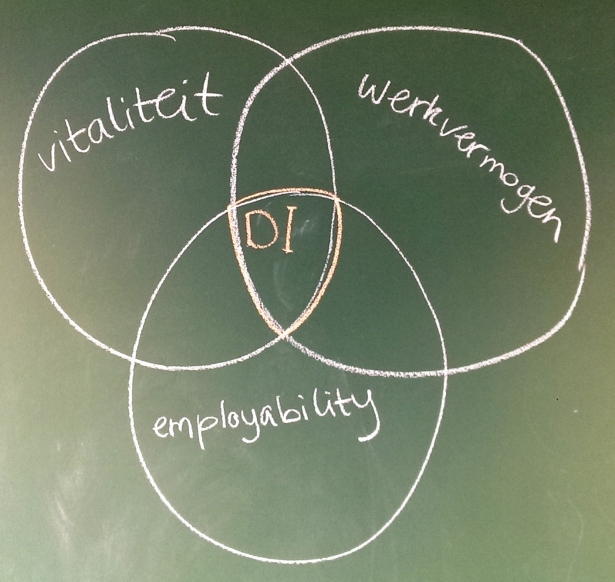 vitaliteit
werkvermogen
DI
employability